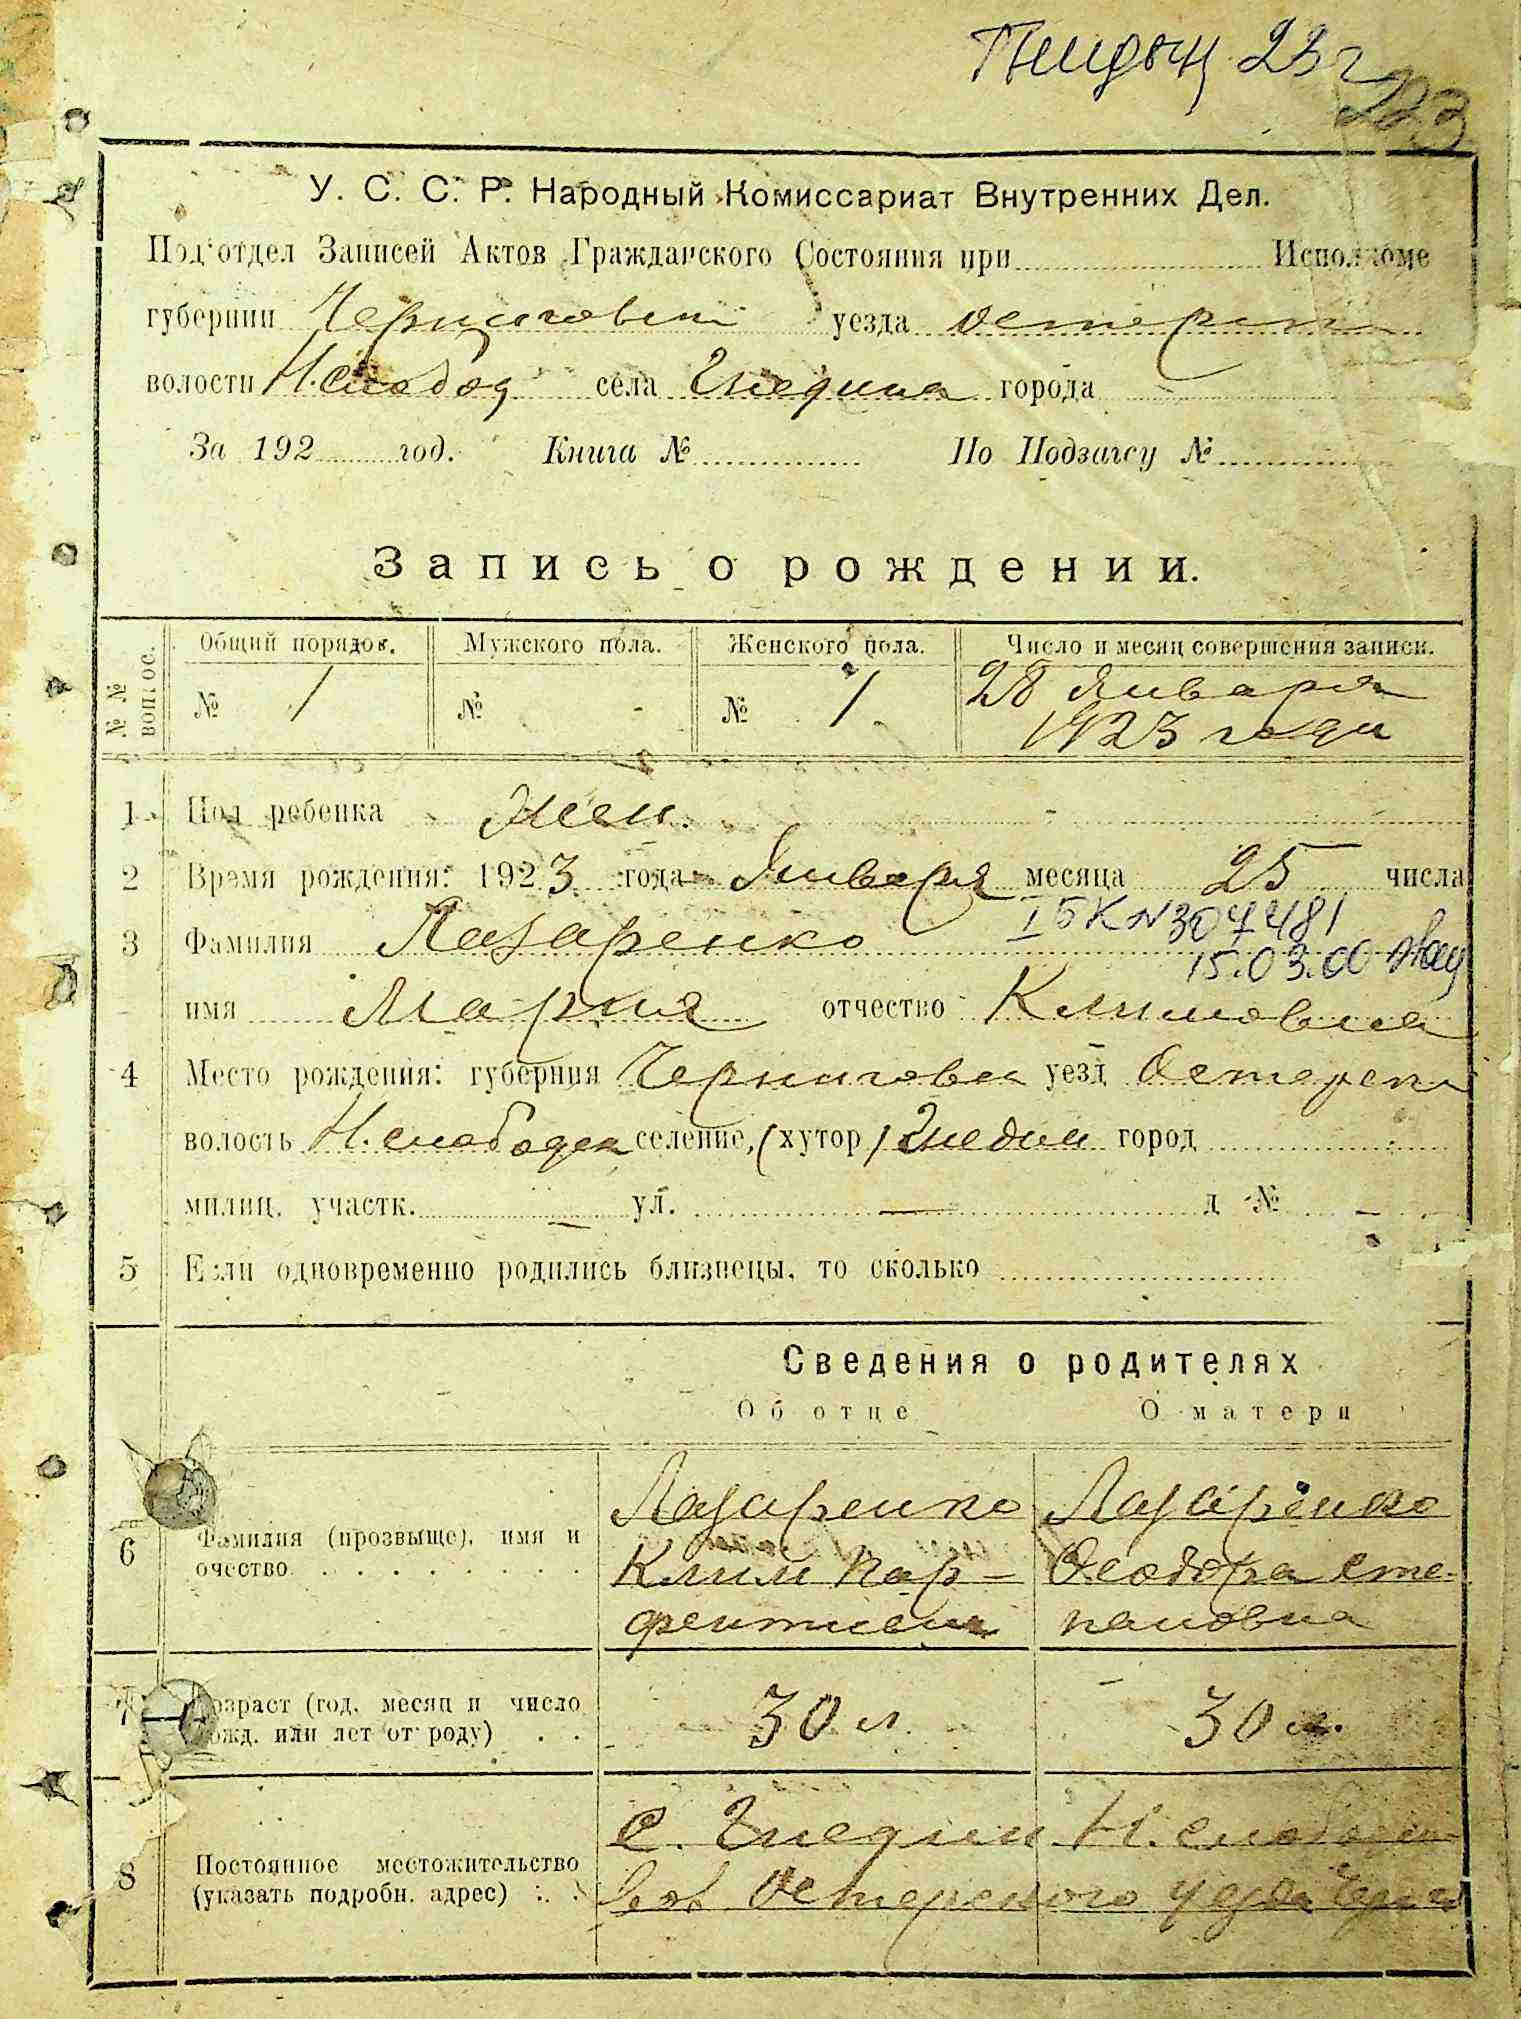 Гнидын 23г
223
У. С. С. Р. Народный Комиссариат Внутренних Дел.
Под'отдел Записей Актов Гражданского Состояния при Исполкоме
губернии Черниговск уезда Остерск
волости Н.слобод села Гнедина города
За 192 год. Книга № По Подзагсу №
Запись о рождении.
№ № вопрос. Общий порядок. Мужского пола. Женского пола. Число и месяц совершения записи.
№ 1 № - № 1 28 Января
1923 года
1 Пол ребенка Жен.
2 Время рождения: 1923 года Января месяца 25 числа
3 Фамилия Лазаренко I БК N 307481
15.03.00
имя Мария отчество Климовна
4 Место рождения: губерния Черниговск уезд Остерск
волость Н.слободск селение, (хутор) Гнедин город
милиц. участк. — ул. — д № —
5 Если одновременно родились близнецы, то сколько
Сведения о родителях
Об отце О матери
6 Фамилия (прозвыще), имя и очество Лазаренко Клим Пар-фентиев Лазаренко Феодора Сте-пановна
7 Возраст (год, месяц и число рожд. или лет от роду) 30 л. 30 л.
8 Постоянное местожительство (указать подробн. адрес) с. Гнедин Н. слободск
вол Остерского уезда Черн